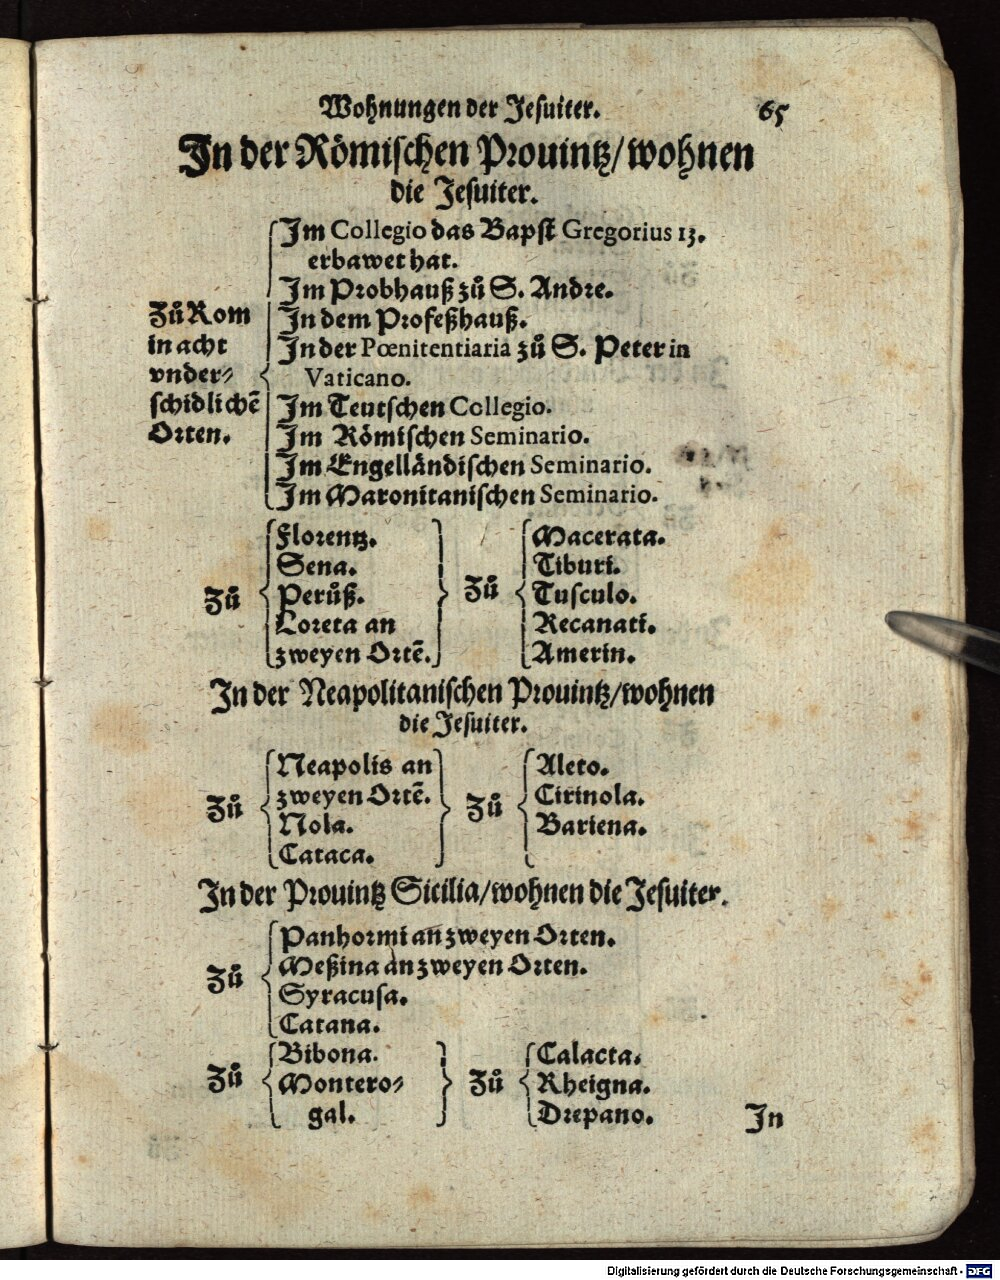 Wohnungen der Jesuiter. 65
In der Römischen Prouintz/wohnen
die Jesuiter.
Zů Rom
in acht
vnder⸗
schidlichẽ
Orten.
Im Collegio das Bapst Gregorius 13.
erbawet hat.
Im Probhauß zů S. Andre.
In dem Profeßhauß.
In der Pœnitentiaria zů S. Peter in
Vaticano.
Im Teutschen Collegio.
Im Römischen Seminario.
Im Engelländischen Seminario.
Im Maronitanischen Seminario.
Zů
Florentz.
Sena.
Perůß.
Loreta an
zweyen Ortẽ.
Zů
Macerata.
Tiburi.
Tusculo.
Recanati.
Amerin.
In der Neapolitanischen Prouintz/wohnen
die Jesuiter.
Zů
Neapolis an
zweyen Ortẽ.
Nola.
Cataca.
Zů
Aleto.
Cirinola.
Bariena.
In der Prouintz Sicilia/wohnen die Jesuiter.
Zů
Panhormi an zweyen Orten.
Meßina an zweyen Orten.
Syracusa.
Catana.
Zů
Bibona.
Montero⸗
gal.
Zů
Calacta.
Rheigna.
Drepano.
In
Digitalisierung gefördert durch die Deutsche Forschungsgemeinschaft - DFG